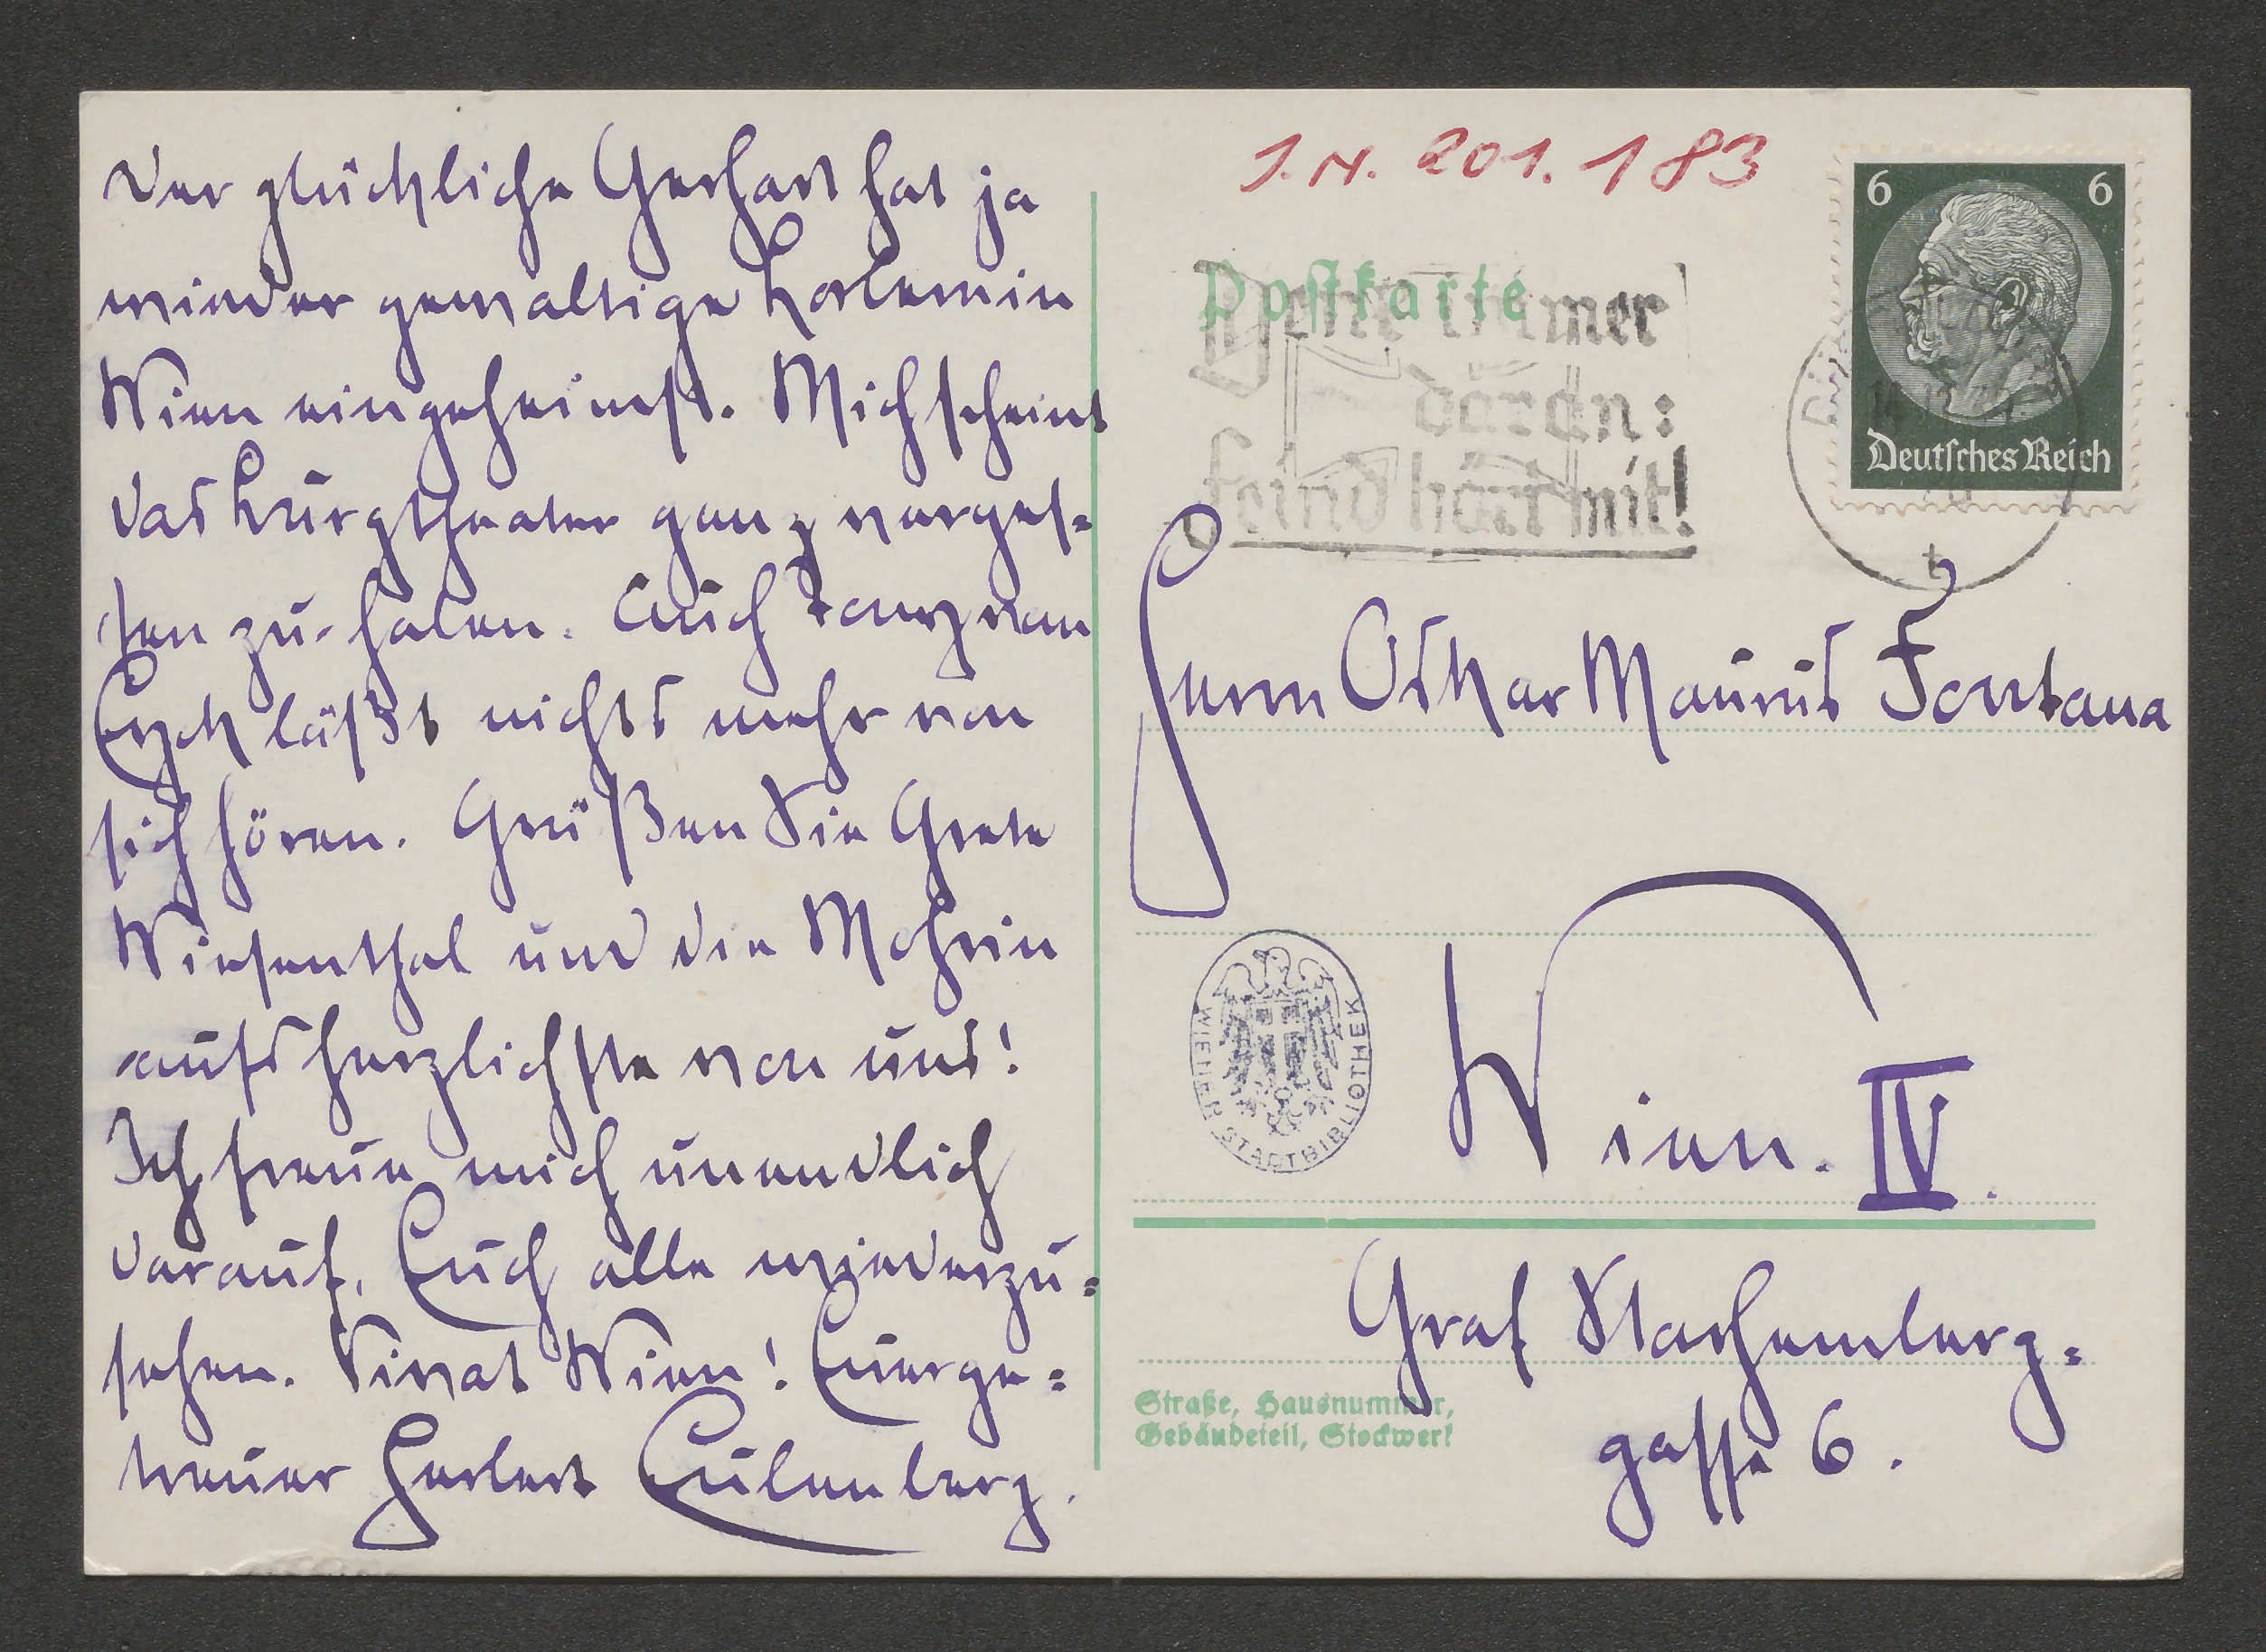 Der glückliche Gerhart hat ja
wieder gewaltige Lorbeer in
Wien eingeheimst. Mich scheint
das Burgtheater ganz verges-
sen zu haben. Auch Franz von
läßt nichts mehr von
sich hören. Grüßen Sie Grete
Wiesenthal und die Mohrin
aufs herzlichste von uns!
Ich freue mich unendlich
darauf, Euch alle wiederzu-
sehen. Vivat Wien! Euer ge-
treuer Herbert Eulenberg.
I.N. 201.183
Postkarte
Denk immer
daran:
Feind hört mit!
6 6
Deutsches Reich
Herrn Oskar Maurus Fontana
WIENER STADTBIBLIOTHEK
Wien. IV.
Graf Starhemberg-
gasse 6.
Straße, Hausnummer,
Gebäudeteil, Stockwerk